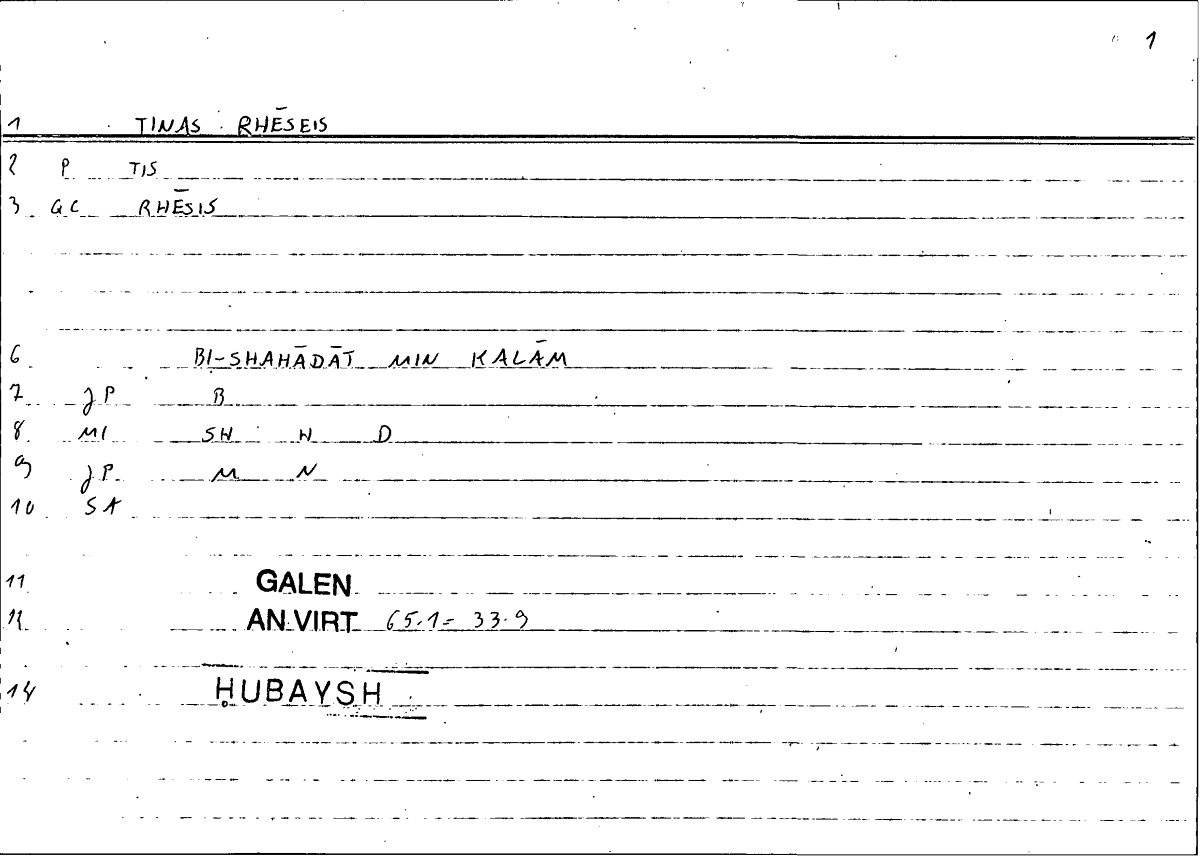 1
1 TINAS RHĒSEIS
2 P TIS
3 GC RHĒSIS
6 BI-SHAHĀDĀT MIN KALĀM
7 JP B
8 MI SH H D
9 JP M N
10 SA
11 GALEN
12 AN.VIRT 65.1= 33.9
14 ḤUBAYSH